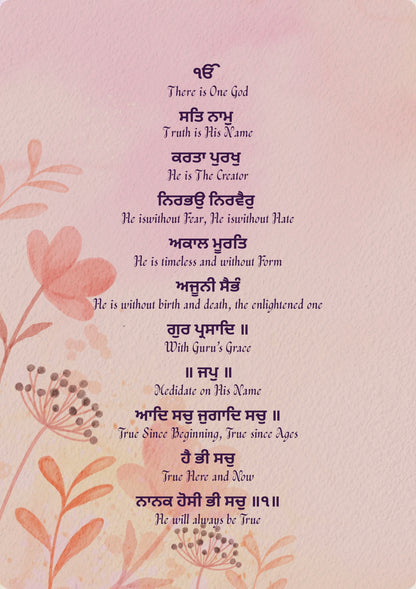 ੴ
There is One God
ਸਤਿ ਨਾਮੁ
Truth is His Name
ਕਰਤਾ ਪੁਰਖੁ
He is The Creator
ਨਿਰਭਉ ਨਿਰਵੈਰੁ
He iswithout Fear, He iswithout Hate
ਅਕਾਲ ਮੂਰਤਿ
He is timeless and without Form
ਅਜੂਨੀ ਸੈਭੰ
He is without birth and death, the enlightened one
ਗੁਰ ਪ੍ਰਸਾਦਿ ॥
With Guru's Grace
॥ ਜਪੁ ॥
Medidate on His Name
ਆਦਿ ਸਚੁ ਜੁਗਾਦਿ ਸਚੁ ॥
True Since Beginning, True since Ages
ਹੈ ਭੀ ਸਚੁ
True Here and Now
ਨਾਨਕ ਹੋਸੀ ਭੀ ਸਚੁ ॥੧॥
He will always be True